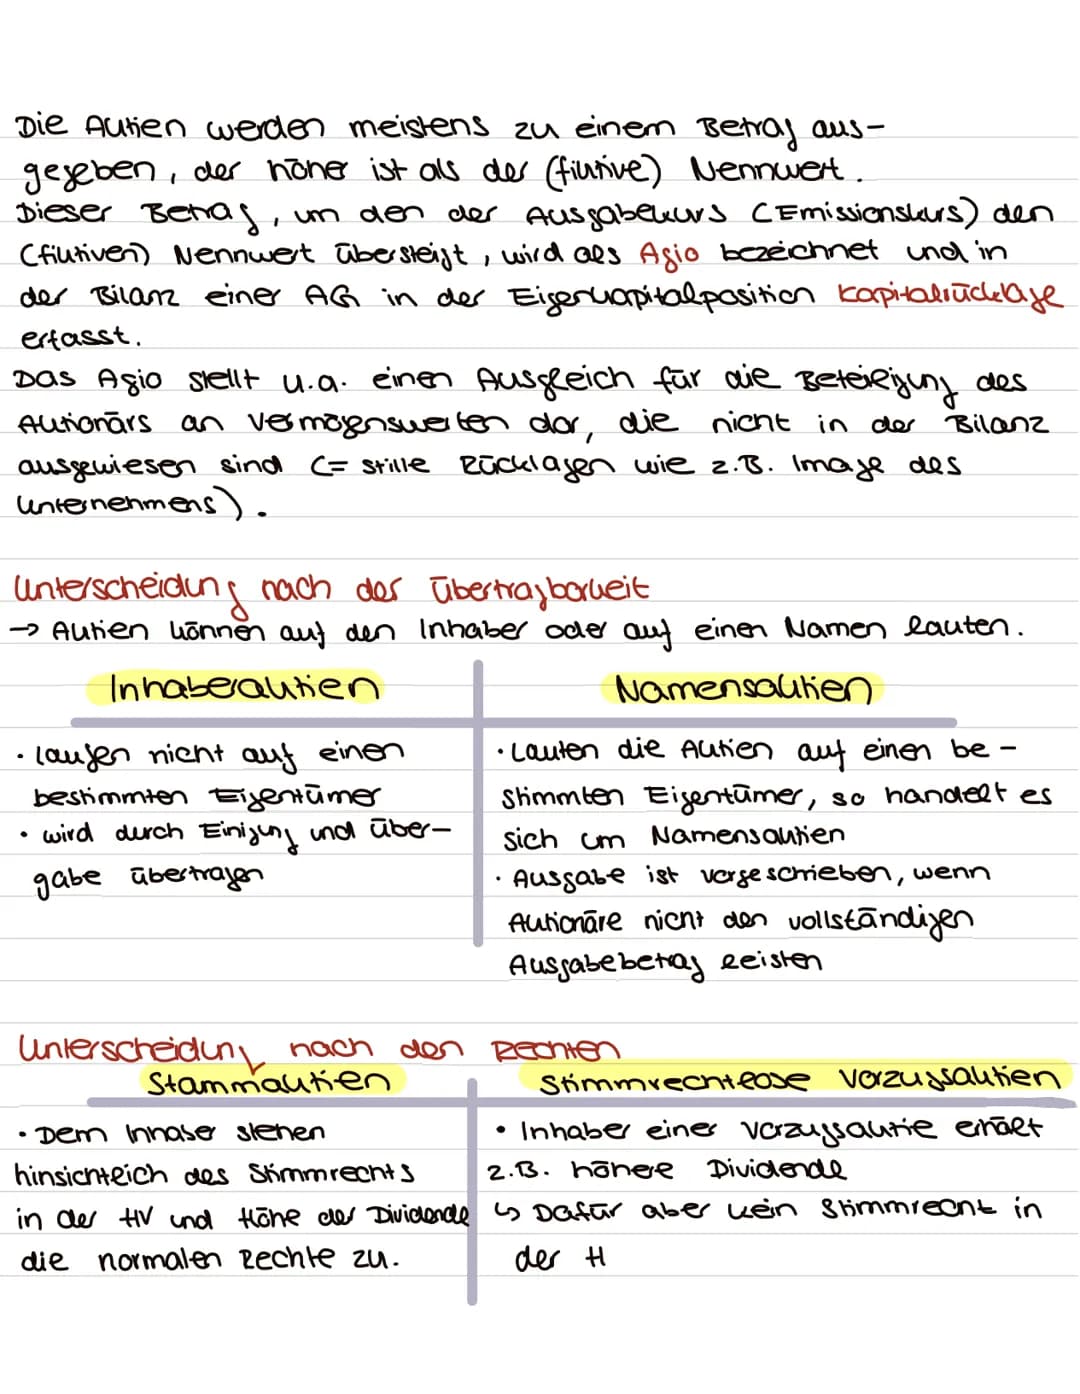 Die Aktien werden meistens zu einem Betrag aus-
gegeben, der höher ist als der (fiktive) Nennwert.
Dieser Betrag, um den der Ausgabekurs (Emissionskurs) den
(fiktiven) Nennwert übersteigt, wird als Agio bezeichnet und in
der Bilanz einer AG in der Eigenkapitalposition Kapitalrücklage
erfasst.
Das Agio stellt u.a. einen Ausgleich für die Beteiligung des
Aktionärs an Vermögenswerten dar, die nicht in der Bilanz
ausgewiesen sind (= stille Rücklagen wie z.B. Image des
Unternehmens).
Unterscheidung nach der Übertragbarkeit
→ Aktien können auf den Inhaber oder auf einen Namen lauten.
Inhaberaktien
· laufen nicht auf einen
bestimmten Eigentümer
· wird durch Einigung und Über-
gabe übertragen
Namensaktien
· Lauten die Aktien auf einen be-
stimmten Eigentümer, so handelt es
sich um Namensaktien
· Ausgabe ist vorgeschrieben, wenn
Aktionäre nicht den vollständigen
Ausgabebetrag leisten
Unterscheidung nach den Rechten
Stammaktien
· Dem Inhaber stehen
hinsichtlich des Stimmrechts
in der HV und Höhe der Dividende
die normalen Rechte zu.
Stimmrechtlose Vorzugsaktien
· Inhaber einer Vorzugsaktie erhält
z.B. höhere Dividende
↳ Dafür aber kein Stimmrecht in
der H